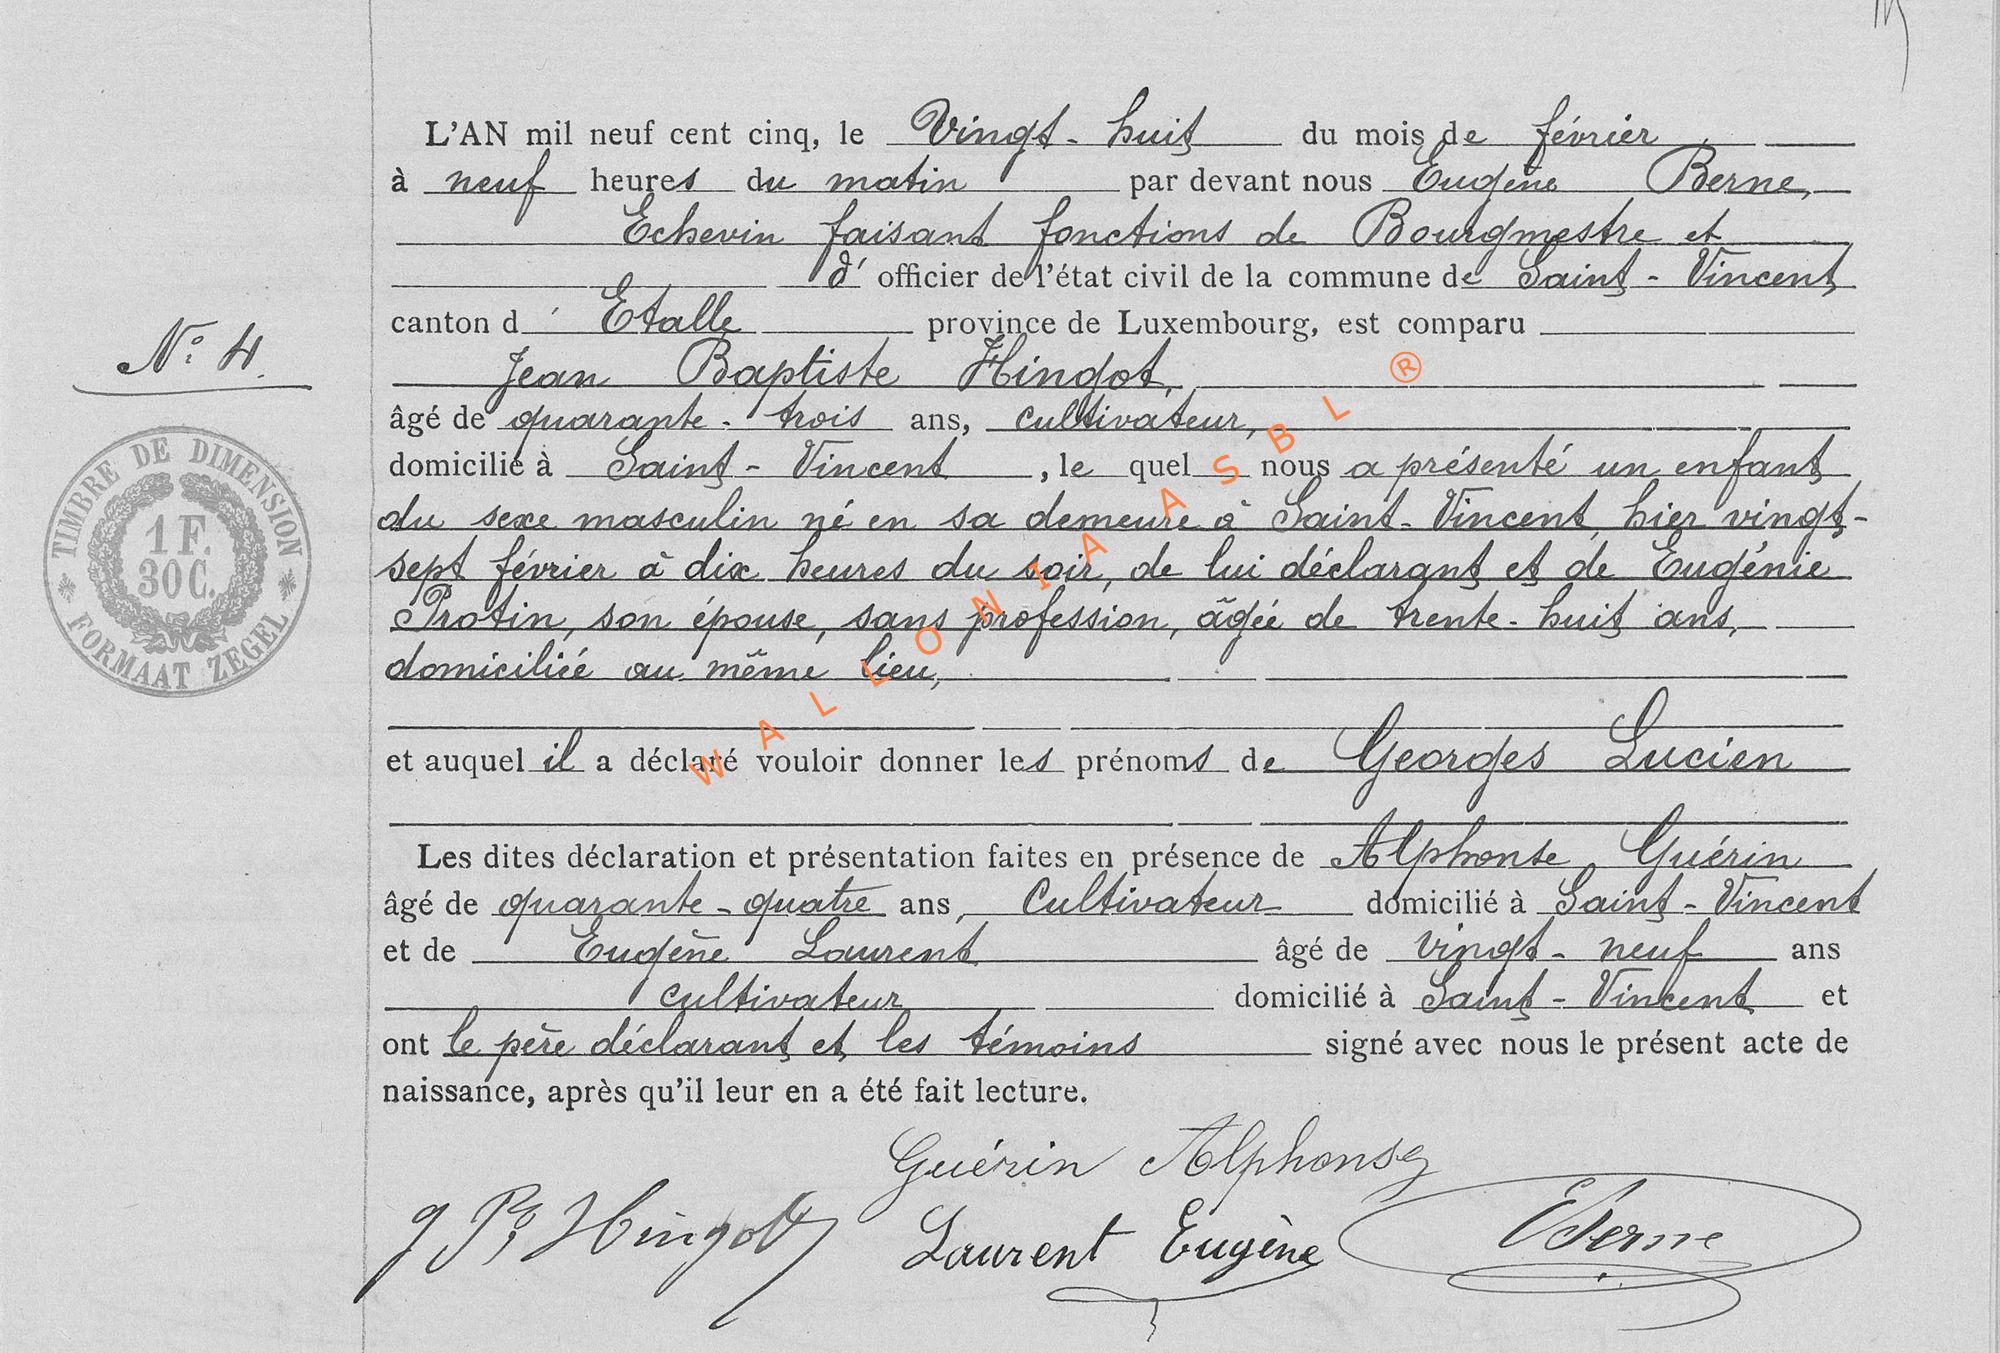 L'AN mil neuf cent cinq, le Vingt-huit du mois de février
à neuf heures du matin par devant nous Eugène Berne,
Echevin faisant fonctions de Bourgmestre et
d' officier de l'état civil de la commune de Saint-Vincent
canton d' Etalle province de Luxembourg, est comparu
N° 4.
Jean Baptiste Hingot,
âgé de quarante-trois ans, cultivateur,
domicilié à Saint-Vincent, le quel nous a présenté un enfant
du sexe masculin né en sa demeure à Saint-Vincent, hier vingt-
sept février à dix heures du soir, de lui déclarant et de Eugénie
Protin, son épouse, sans profession, âgée de trente-huit ans,
domiciliée au même lieu,
et auquel il a déclaré vouloir donner les prénoms de Georges Lucien
Les dites déclaration et présentation faites en présence de Alphonse Guérin
âgé de quarante-quatre ans, Cultivateur domicilié à Saint-Vincent
et de Eugène Laurent âgé de vingt-neuf ans
cultivateur domicilié à Saint-Vincent et
ont le père déclarant et les témoins signé avec nous le présent acte de
naissance, après qu'il leur en a été fait lecture.
Guérin Alphonse
J Bte Hingot
Laurent Eugène
EBerne
TIMBRE DE DIMENSION
1 F.
30 C.
FORMAAT ZEGEL
WALLONIA ASBL ®